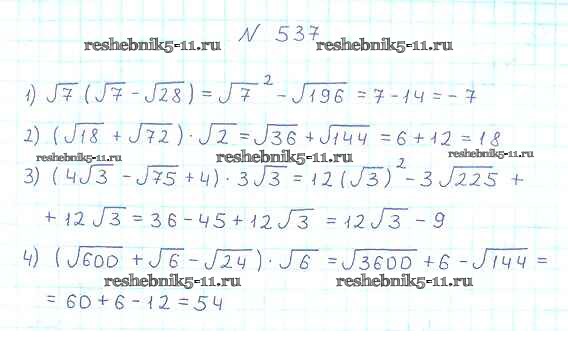 N 537
reshebnik5-11.ru reshebnik5-11.ru
1) √7 (√7 - √28) = √7² - √196 = 7 - 14 = - 7
2) (√18 + √72) · √2 = √36 + √144 = 6 + 12 = 18
reshebnik5-11.ru reshebnik5-11.ru reshebnik5-11.ru
3) (4√3 - √75 + 4) · 3√3 = 12(√3)² - 3√225 +
+ 12√3 = 36 - 45 + 12√3 = 12√3 - 9
4) (√600 + √6 - √24) · √6 = √3600 + 6 - √144 =
reshebnik5-11.ru reshebnik5-11.ru
= 60 + 6 - 12 = 54